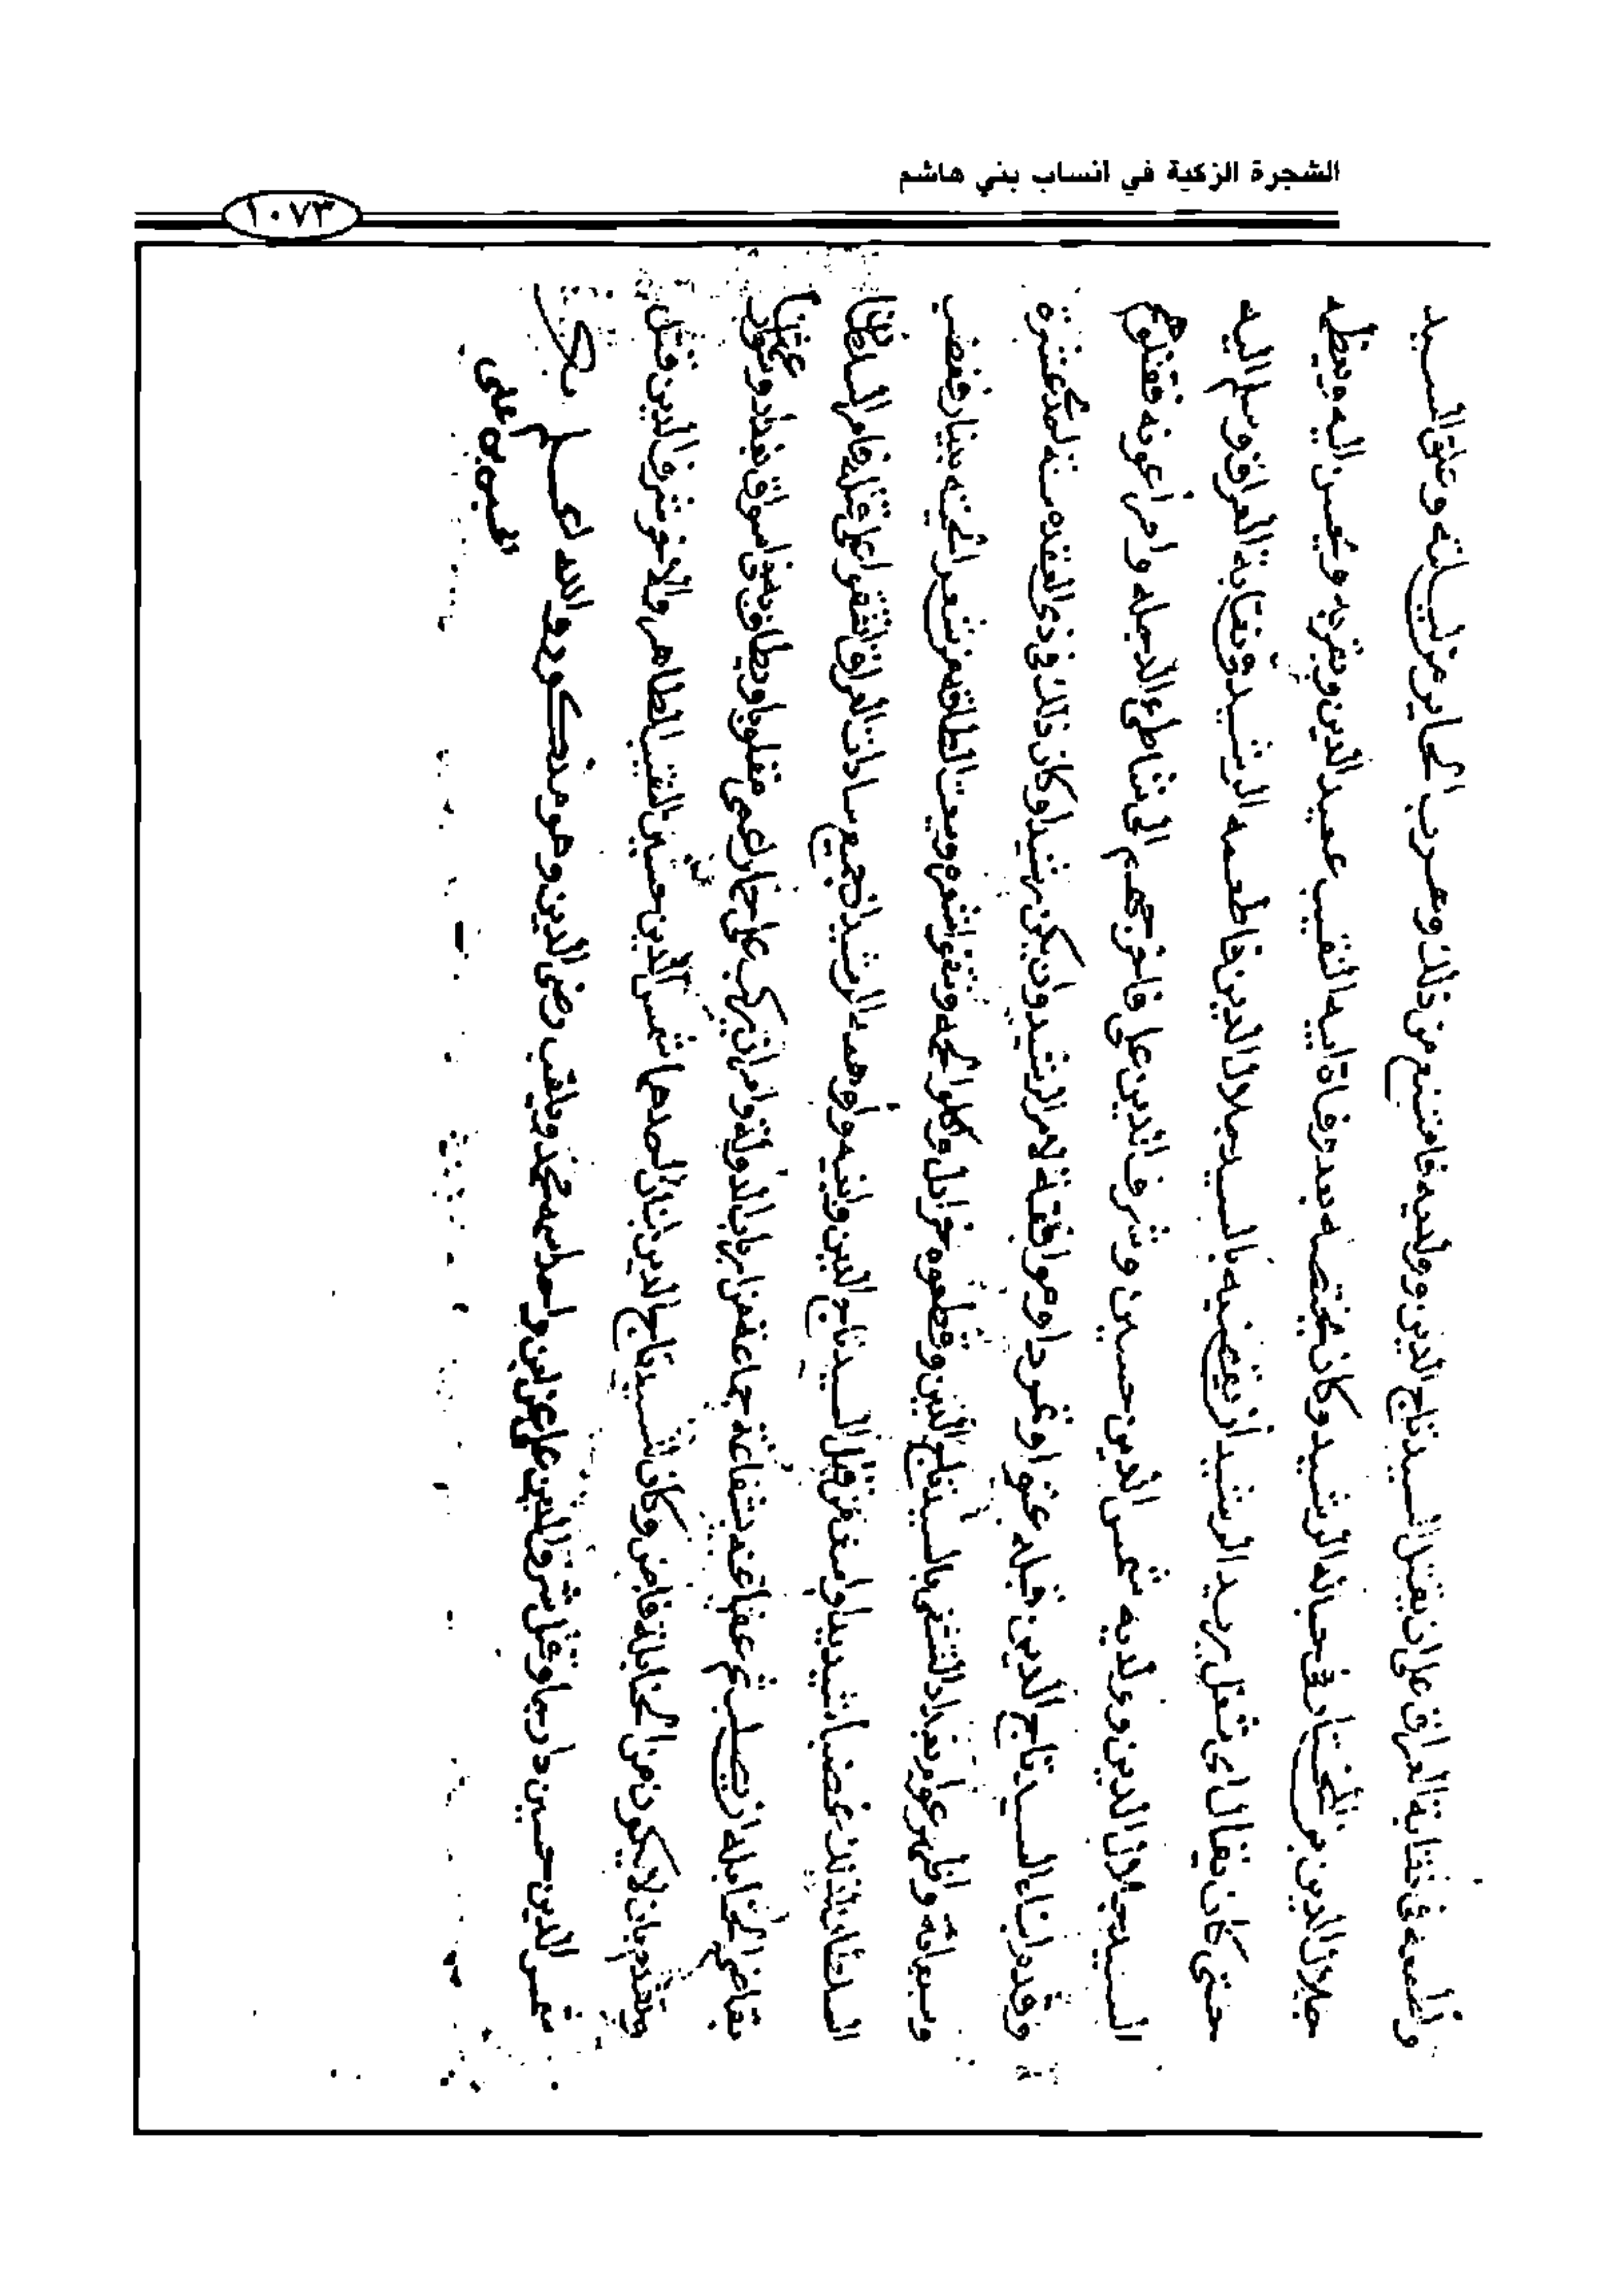 الشجرة الزكية في انساب بني هاشم
١٠٧٣
وأطمعه فى نقابة العراق على ان يقتل السيد تاج الدين وولديه فامتنع من ذلك وهرب الحاير من ليلته وعلق السيد
جلال الدين بن المختار فى حباله الرشيد وكان يختصه بعد وفاة ابيه النقيب عميد الدين ويقربه ويحسن اليه ويعظه
حتى كان يقال اى شغل يريد الرشيد ان يقضيه بالسيد جلال الدين فاطمعه الرشيد فى نقابة العراق وسلم اليه
السيد جلال الدين وولديه شمس الدين حسين وشرف الدين على فاخرجهم الى شاطئ الدجله وامر أعونه فقتلوهم
وقدم ابناء السيد تاج الدين قبله عتوا وتمردا وموافقة لامر الرشيد وان يكن رشيدا وكان ذلك فى ذى القعده سنه احدى عشرة
وسبعمائة واظهر عوام بغداد التشفى بالسيد تاج الدين وقطعوه واكلوا لحمه ونتفوا شعره وبيعت الطاقه من شعر لحيته بدينار فغضب
السلطان لذلك غضبا شديدا واسف من قتل السيد تاج الدين وابنيه وأوهمه الرشيد ان جميع سادات العراق اتفقوا على قتله فامر السلطان
بقاضى الحنابله ان يصلب ثم عفا عنه بشفاعة جماعة من ارباب الدولة وامر ان يركب على حمار اعمى مقلوبا ويطاف به فى اسواق بغداد
وتقدم بان لا يكون من الحنابلة قاض وكان للسيد تاج الدين ابنان احدهما شمس الدين حسين النقيب الطاهر والاخر شرف الدين قتل
شمس الدين حسين دارجا وقتل شرف الدين على عن ابن واحد اسمه محمد ويلقب رضى الدين وهو مذكور والله اعلم
على